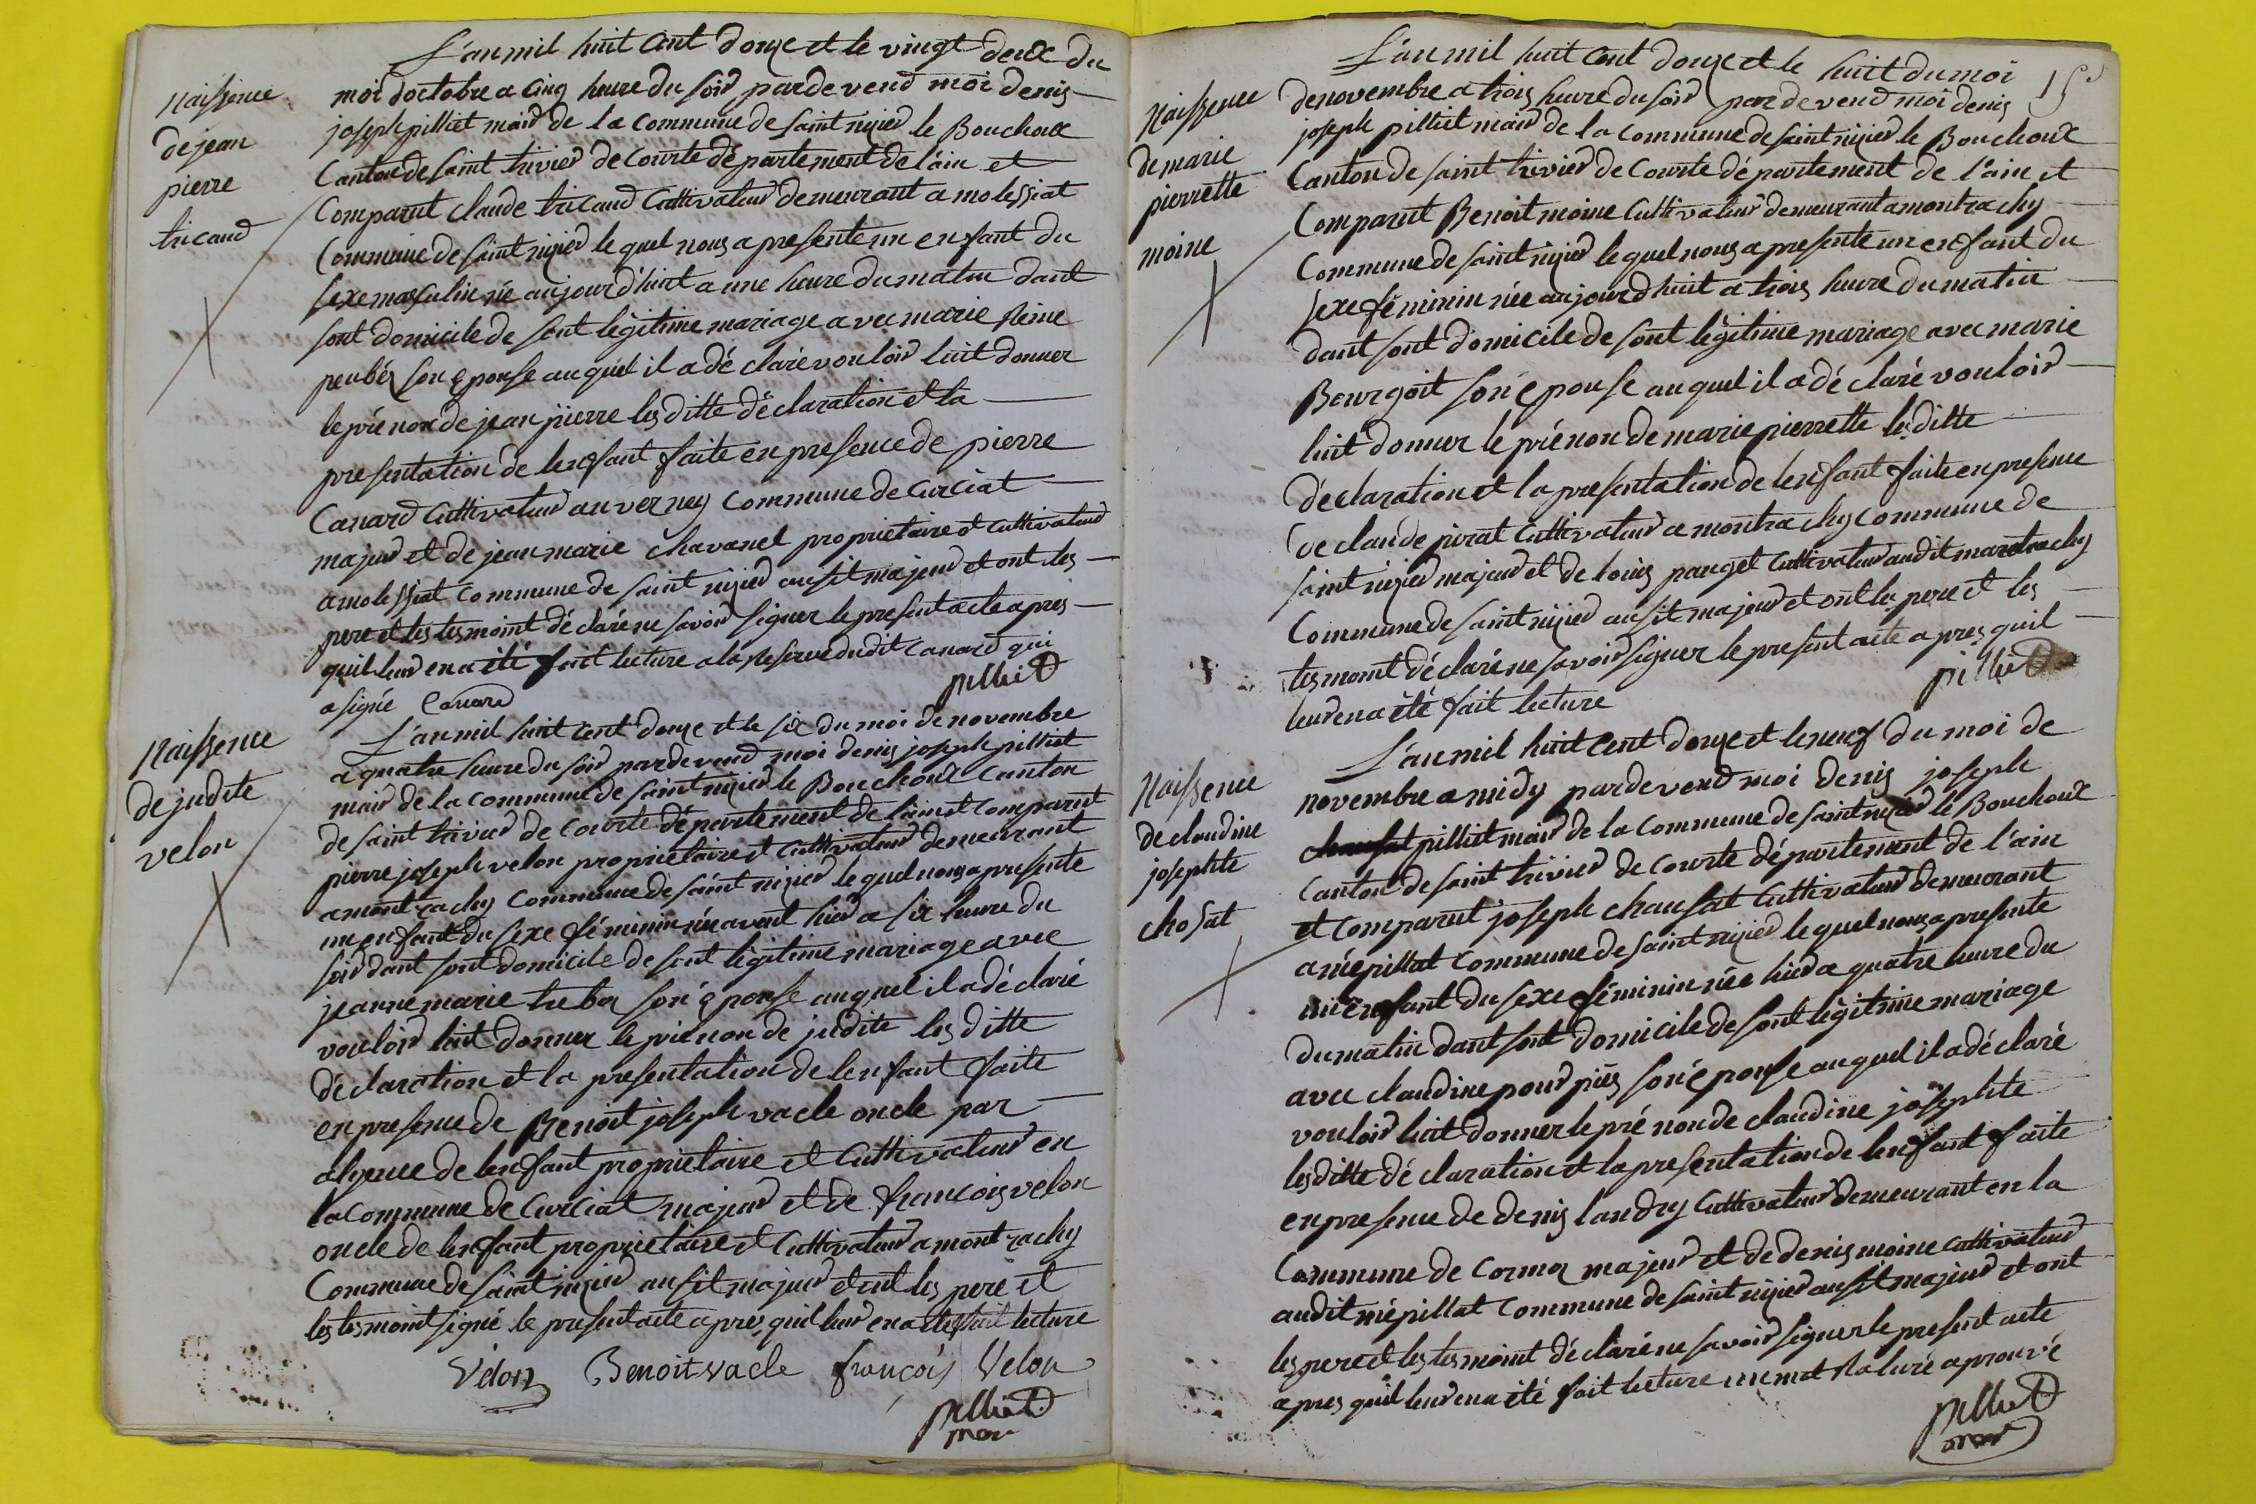 Naissence
de jean
pierre
tricaud
L'an mil huit Cent douze et le vingt deux du
moi doctobre a Cinq heure du soir pardevend moi denis
joseph pilliet mair de la commune de saint nizier le Bouchoux
Canton de saint trivier de Courte département de l'ain et
Comparut claude tricaud Cultivateur demeurant a molessiat
Commune de saint nizier le quel nous a presente un enfant du
sexe masculin née aujourd'huit a une heure du matin dant
sont domicile de sont légitime mariage avec marie Reine
peubéz son épouse auquél il a dé claré vouloir luit donner
le pré non de jean pierre les ditte déclaration et la
presentation de lenfant faite en presence de pierre
Canard Cultivateur au verney Commune de Curciat
majeur et de jean marie chavanel propriétaire et cultivateur
a molessiat commune de saint nizier ausit majeur et ont les
pere et les tesmoint déclaré ne savoir signer le present acte apres
quil leur en a été fait lecture a la Reserve dudit Canard qui
a signé Canard
pilliet
Naissence
de judite
velon
L'an mil huit cent douze et le six du moi de novembre
a quatre heure du soir pardevend moi denis joseph pilliet
mair de la commune de saint nizier le Bouchoux Canton
de saint trivier de Courte département de l'ain et comparut
pierre joseph velon propriétaire et cultivateur demeurant
a montrachy Commune de saint nizier le quel nous a presente
un enfant du sexe féminin née avant hier a six heure du
soir dant sont domicile de sont légitime mariage avec
jeanne marie treboz son épouse auquel il a déclaré
vouloir luit donner le pré non de judite les ditte
déclaration et la presentation de lenfant faite
en presence de Benoit joseph vacle oncle par
alyence de lenfant propriétaire et Cultivateur en
la commune de Curciat majeur et de francois velon
oncle de lenfant propriétaire et Cultivateur a montrachy
Commune de saint nizier ausit majeur et ont les pere et
les tesmoint signé le present acte apres quil leur en a été fait lecture
Velon Benoit vacle françois Velon
pilliet
mair
15
Naissence
de marie
pierrette
moine
L'an mil huit Cent douze et le huit du moi
de novembre a trois heure du soir pardevend moi denis
joseph pilliet mair de la commune de saint nizier le Bouchoux
Canton de saint trivier de Courte département de l'ain et
Comparut Benoit moine Cultivateur demeurant a montrachy
Commune de saint nizier le quel nous a presente un enfant du
sexe féminin née aujourd huit a trois heure du matin
dant sont domicile de sont légitime mariage avec marie
Bourgoit son épouse auquel il a dé claré vouloir
luit donner le prénon de marie pierrette les ditte
déclaration et la presentation de lenfant faite en presence
de claude pirat Cultivateur a montrachy commune de
saint nizier majeur et de louis pauget Cultivateur audit montrachy
Commune de saint nizier ausit majeur et ont le pere et les
tesmoint déclaré ne savoir signer le present acte apres quil
leur en a été fait lecture
pilliet
Naissence
de claudine
josephte
chosat
L'an mil huit Cent douze et le neuf du moi de
novembre a midy pardevend moi denis joseph
pilliet mair de la commune de saint nizier le Bouchoux
Canton de saint trivier de Courte département de l'ain
et comparut joseph chausat Cultivateur demeurant
a mépillat commune de saint nizier le quel nous a presente
un enfant du sexe féminin née hier a quatre heure du
du matin dant sont domicile de sont légitime mariage
avec claudine pour piés son épouse auquel il a déclaré
vouloir luit donner le pré non de claudine josephte
les ditte déclaration et la presentation de lenfant faite
en presence de denis landry Cultivateur demeurant en la
Commune de Cormoz majeur et de denis moine cultivateur
audit mépillat commune de saint nizier ausit majeur et ont
les pere et les tesmoint déclaré ne savoir signer le present acte
apres quil leur en a été fait lecture un mot Raturé aprouvé
pilliet
mair